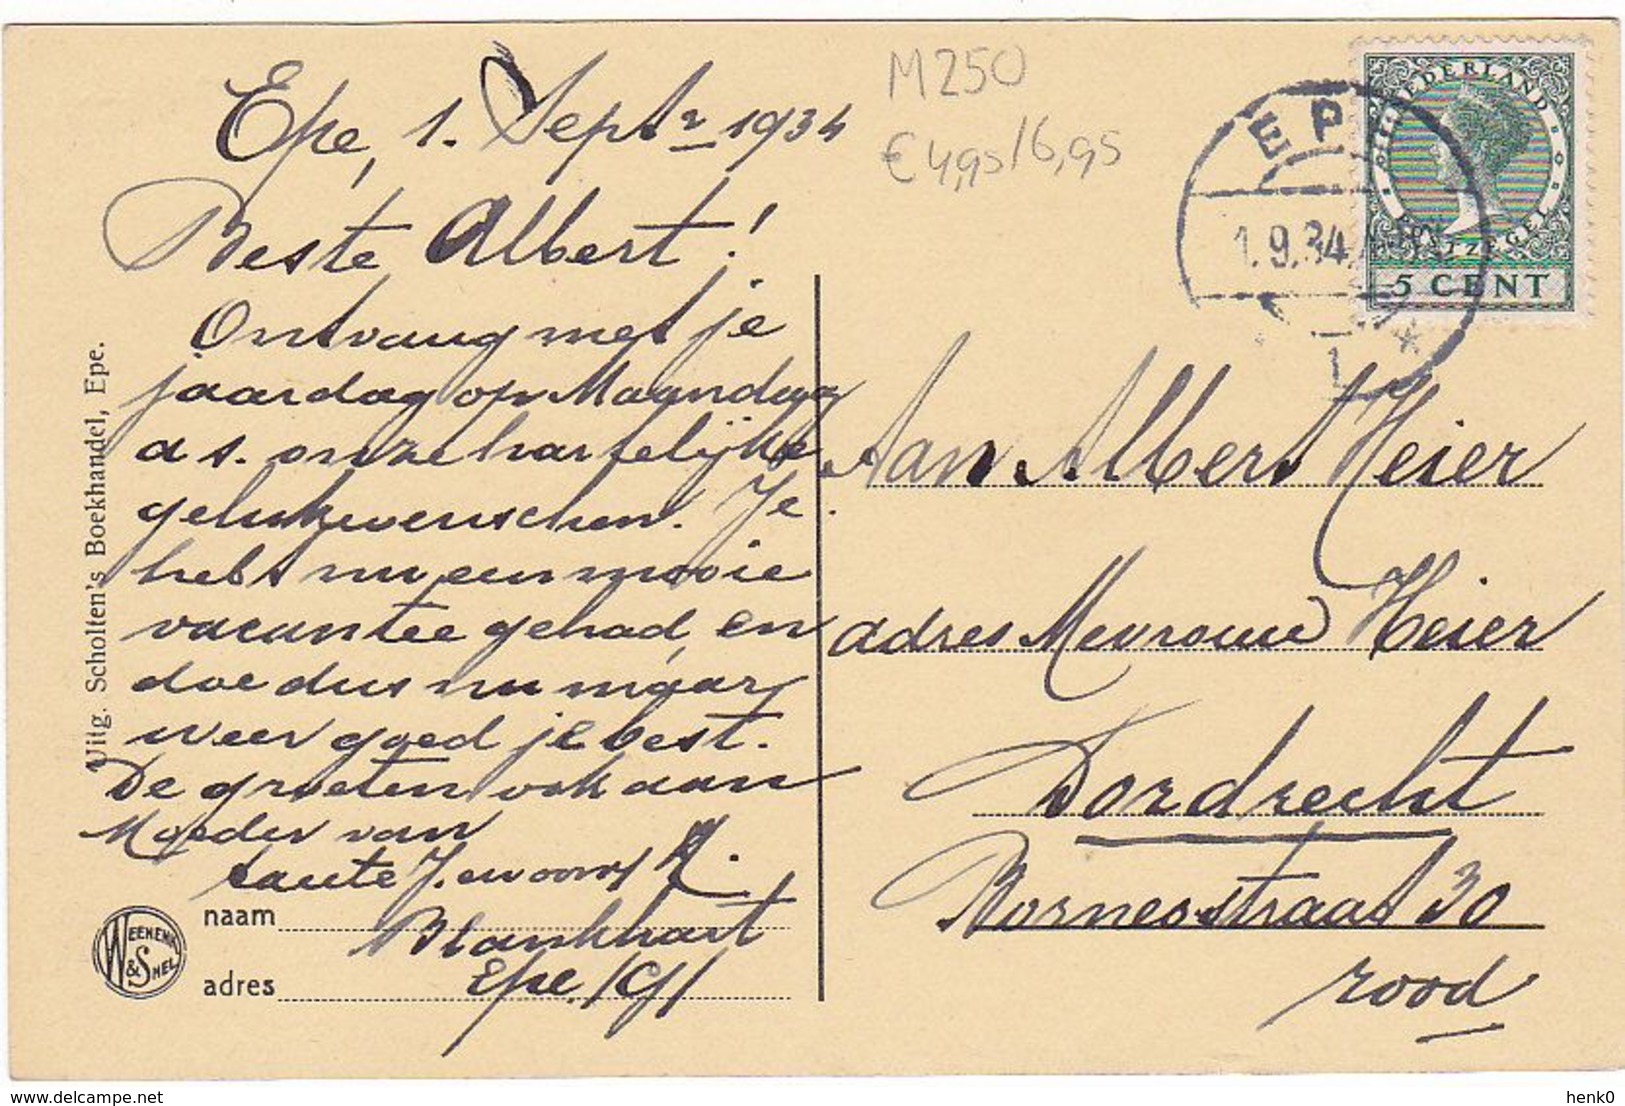 M250
€ 4,95/6,95
Epe, 1. Septr 1934
Beste Albert!
Ontvang met je
jaardag op Maandag
a s. onze hartelijke
gelukwenschen. Je
hebt nu een mooie
vacantee gehad, en
doe dus nu maar
weer goed je best.
De groeten ook aan
Moeder van
tante J. en oom H.
Blankhart
Epe /G/
naam
adres
WEENENK
& SNEL
Uitg. Scholten's Boekhandel, Epe.
EPE
1.9.34
1
NEDERLAND
POSTZEGEL
5 CENT
Aan Albert Heier
adres Mevrouw Heier
Dordrecht
Bornesstraat 30
rood
henk0